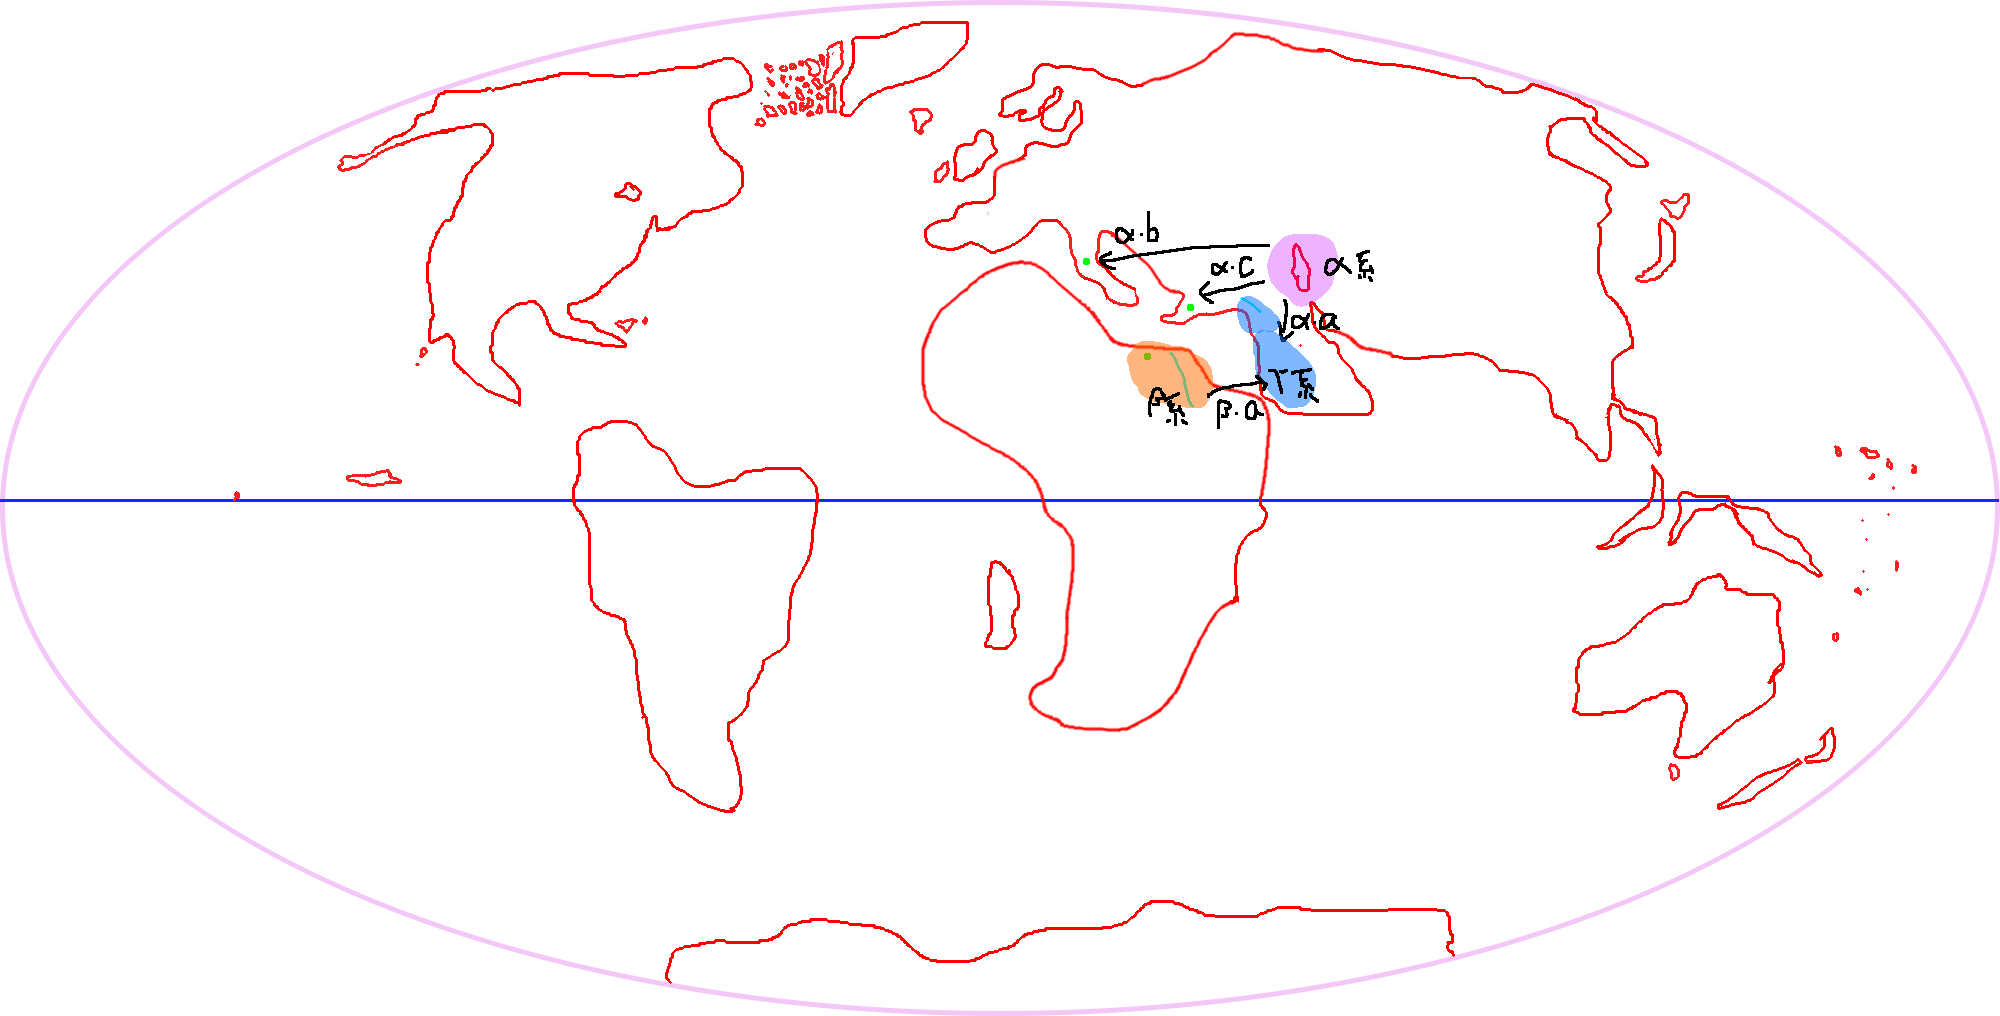 α・b
α・c
α系
α・a
γ系
β系
β・a